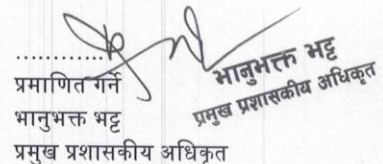 ............
प्रमाणित गर्ने
भानुभक्त भट्ट
प्रमुख प्रशासकीय अधिकृत
भानुभक्त भट्ट
प्रमुख प्रशासकीय अधिकृत